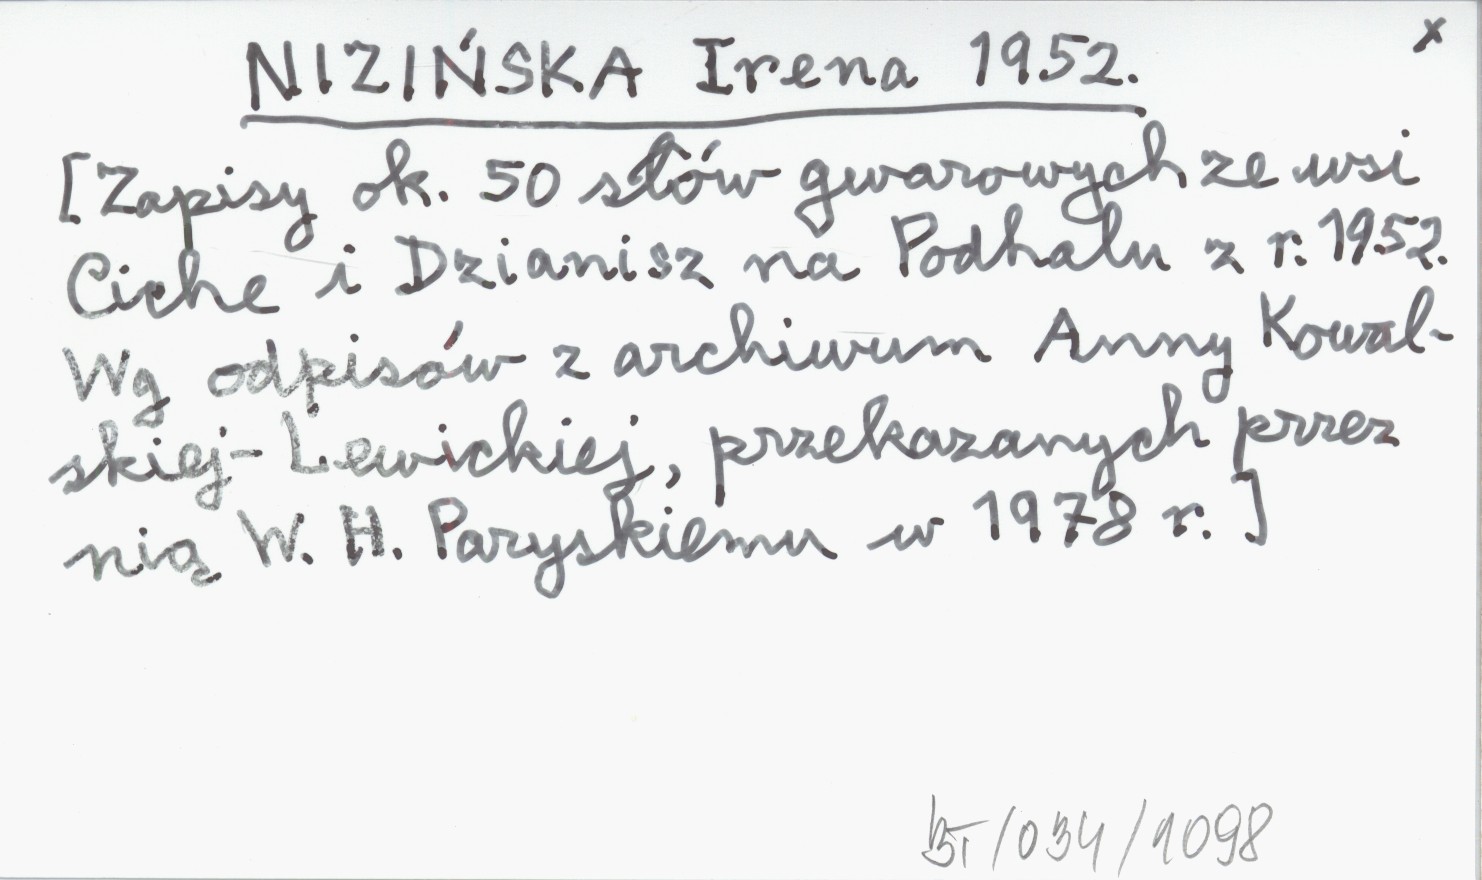 x
NIZIŃSKA Irena 1952.
[Zapisy ok. 50 słów gwarowych ze wsi
Ciche i Dzianisz na Podhalu z r. 1952.
Wg odpisów z archiwum Anny Kowal-
skiej-Lewickiej, przekazanych przez
nią W. H. Paryskiemu w 1978 r.]
/034/1098